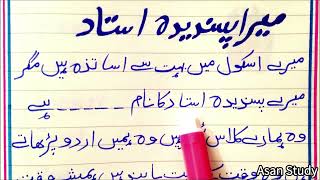 میرا پسندیدہ استاد
میرے اسکول میں بہت سے اساتذہ ہیں مگر
میرے پسندیدہ استاد کا نام _ _ _ _ _ ہے
وہ ہمارے کلاس ہیں وہ ہمیں اردو پڑھاتے
وقت ہمیشہ وقت
Asan Study